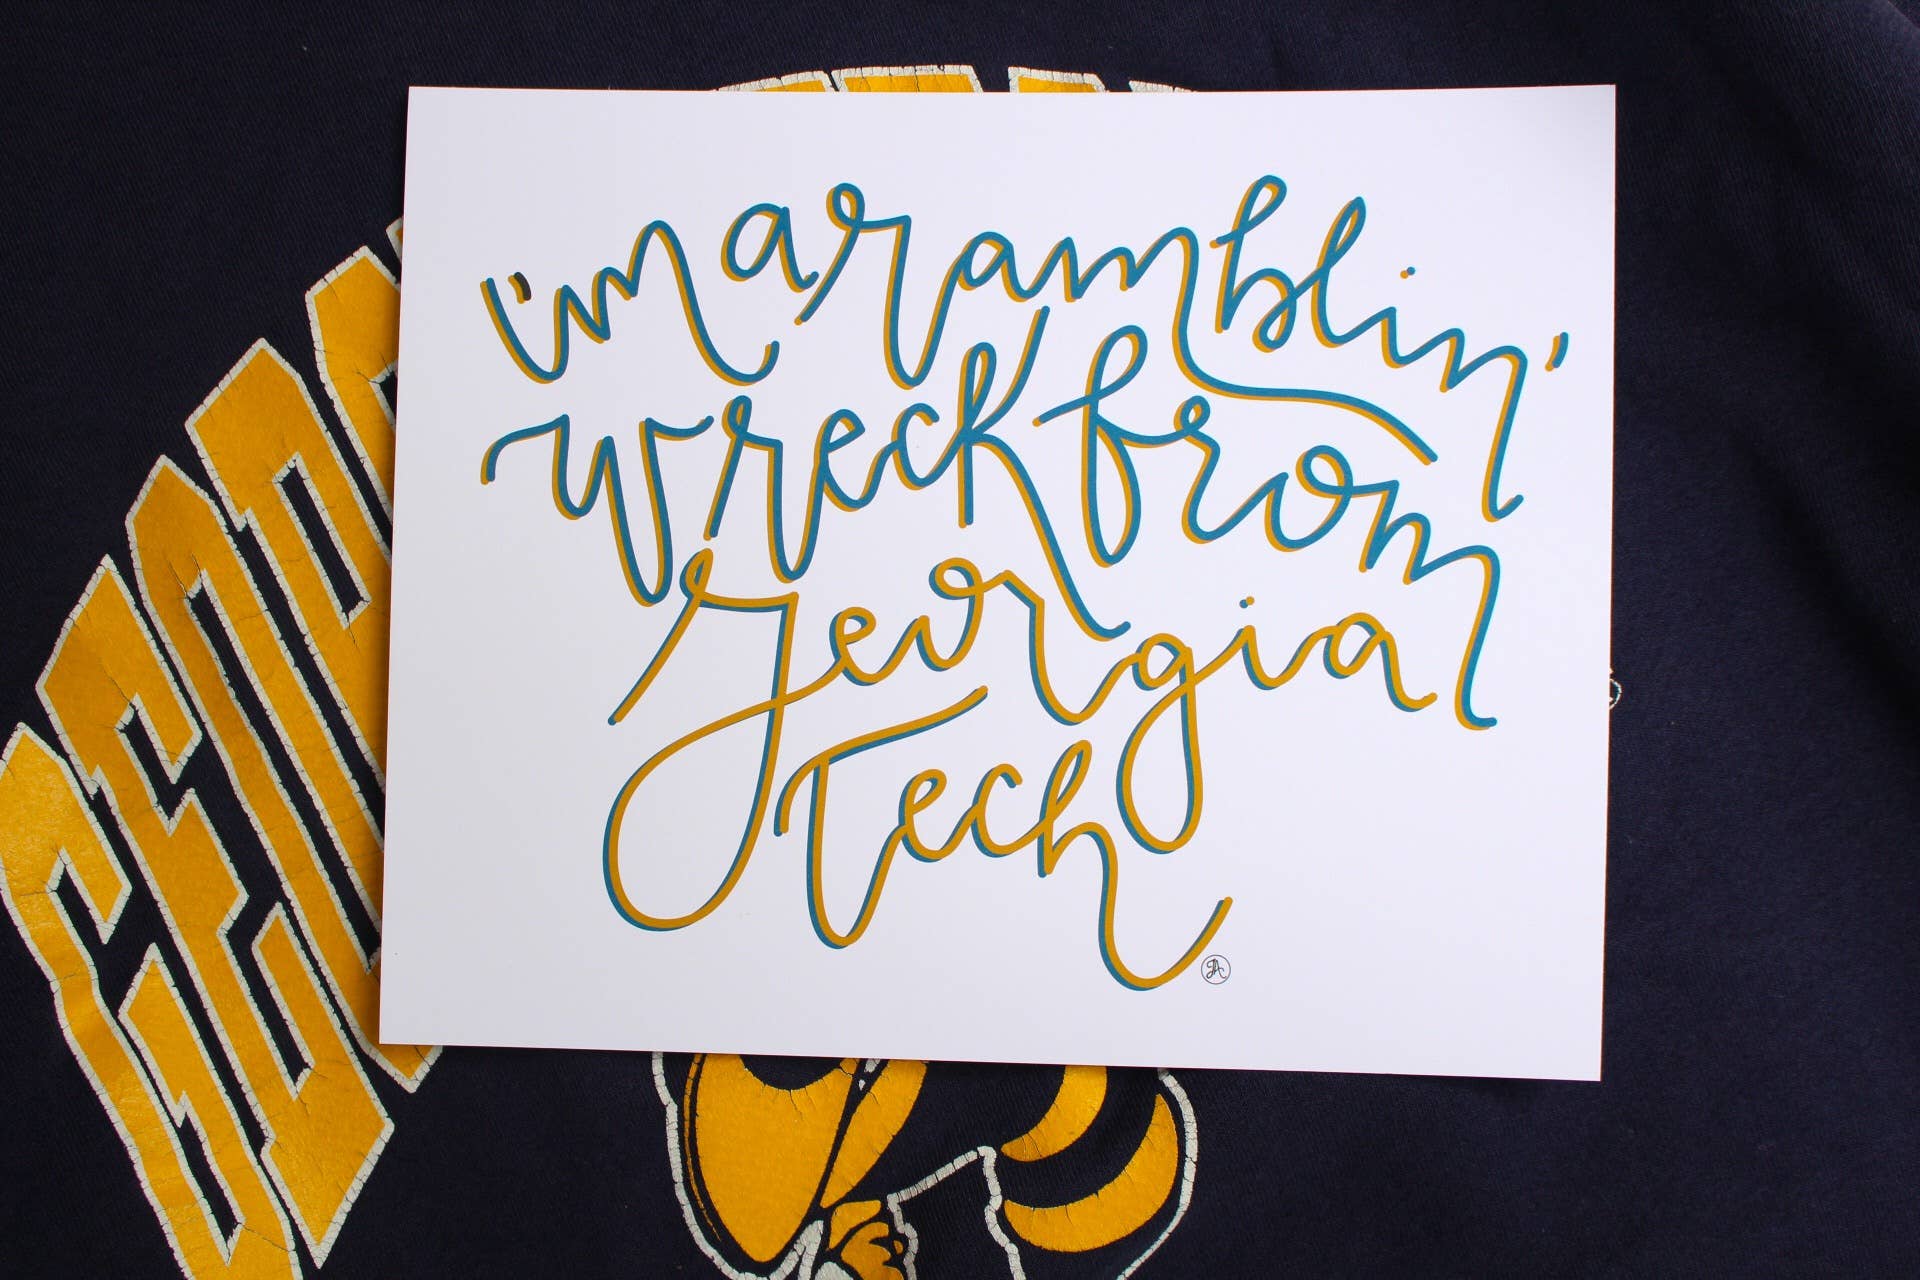 i'm a ramblin'
wreck from
georgia
tech
JA
GEOR